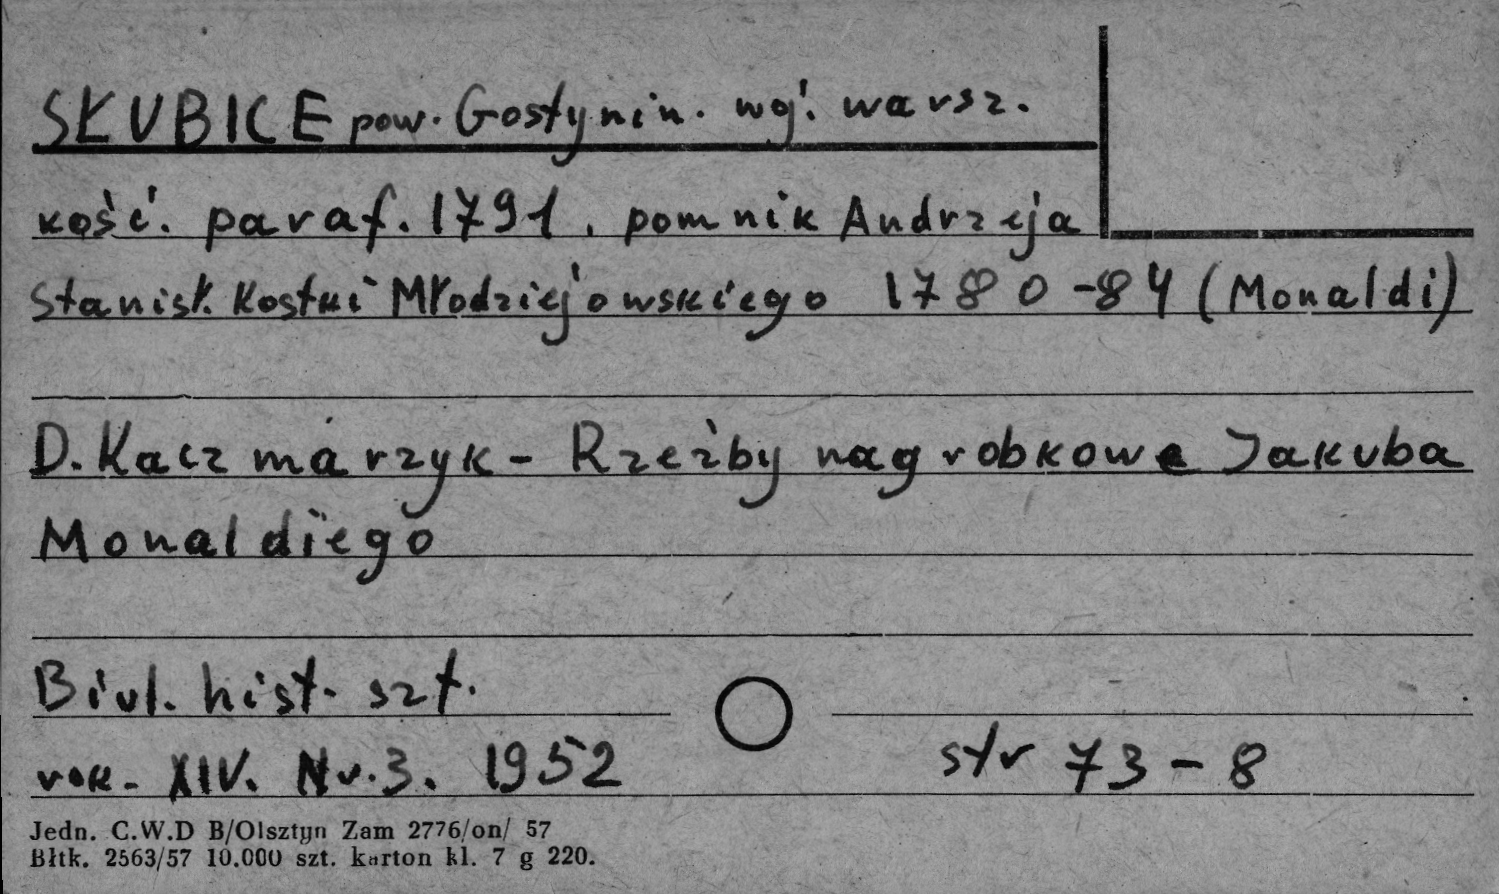 SŁUBICE pow. Gostynin. woj. warsz.
kość. paraf. 1791. pomnik Andrzeja
Stanisł. Kostki Młodziejowskiego 1780-84 (Monaldi)
D. Kaczmarzyk - Rzeźby nagrobkowe Jakuba
Monaldiego
Biul. hist. szt.
rok. XIV. Nr. 3. 1952 str 73-8
Jedn. C.W.D B/Olsztyn Zam 2776/on/ 57
Błtk. 2563/57 10.000 szt. karton kl. 7 g 220.